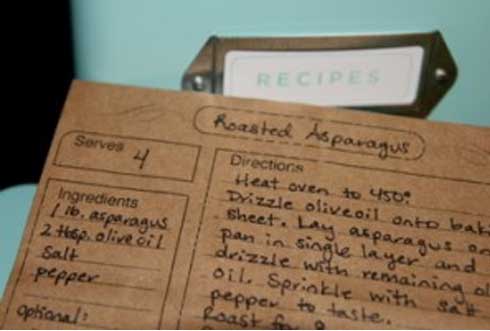 RECIPES
Roasted Asparagus
Serves 4
Ingredients
1 lb. asparagus
2 tbsp. olive oil
salt
pepper
optional:
Directions
Heat oven to 450°.
Drizzle olive oil onto
sheet. Lay asparagus
pan in single layer and
drizzle with remaining
oil. Sprinkle with salt
pepper to taste.
Roast for